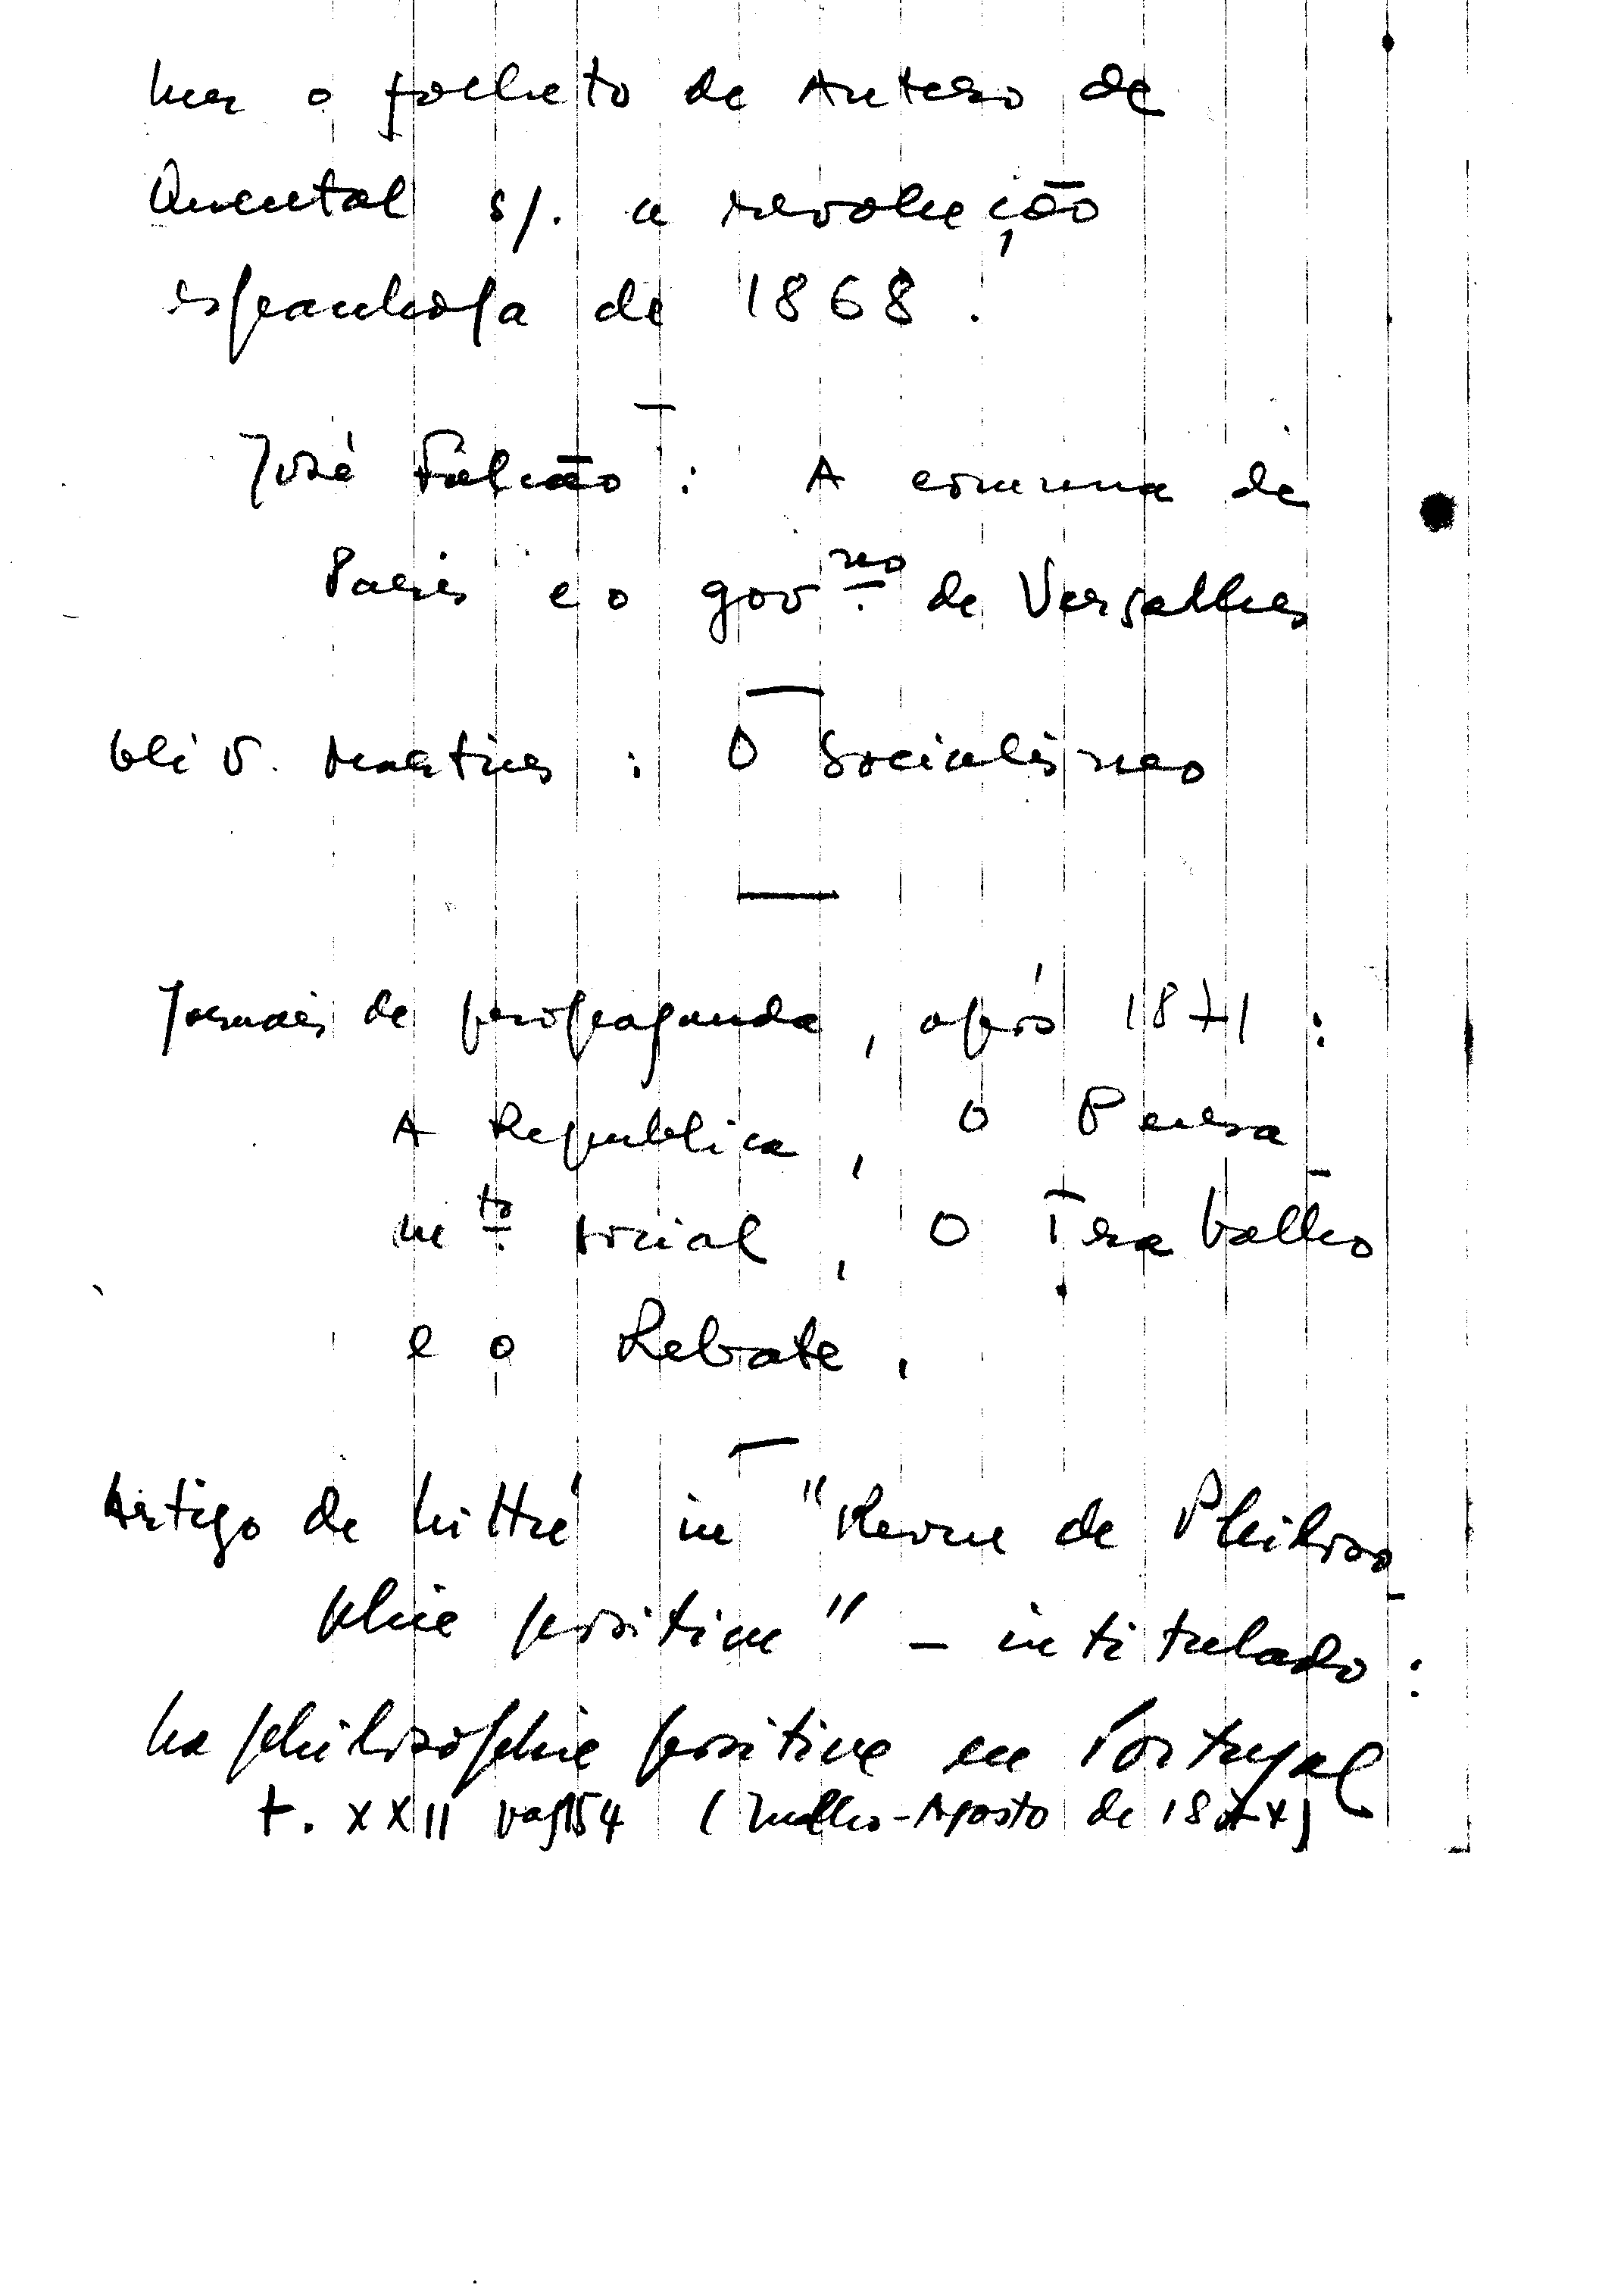 Ler o folheto de Antero de
Quental s/. a revolução
espanhola de 1868.
José Falcão: A comuna de
Paris e o gov.no de Versalhes
Oliv. Martins: O Socialismo
Jornais de propaganda, após 1871:
A Republica, O Pensa-
m.to social, O Trabalho
e o Rebate.
Artigo de Littré in "Revue de Philoso-
phie positive" - intitulado:
La philosophie positive en Portugal
t. XXII pag 154 (Julho-Agosto de